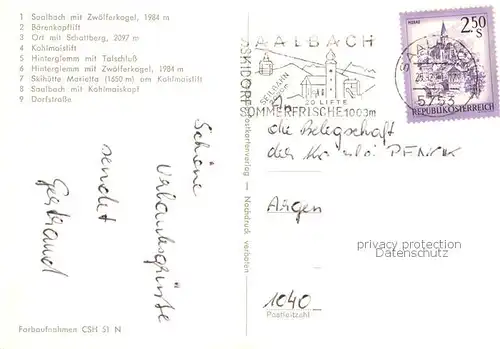 1 Saalbach mit Zwölferkogel, 1984 m
2 Bärenkopflift
3 Ort mit Schattberg, 2097 m
4 Kohlmaislift
5 Hinterglemm mit Talschluß
6 Hinterglemm mit Zwölferkogel, 1984 m
7 Skihütte Marietta (1650 m) am Kohlmaislift
8 Saalbach mit Kohlmaiskopf
9 Dorfstraße
SAALBACH
SKIDORF
SEILBAHN
20 LIFTE
SOMMERFRISCHE 1003m
SAALBACH
5753
2,50
S
REPUBLIK ÖSTERREICH
die Belegschaft
der Kanzlei
1040
Postleitzahl
Schöne
Urlaubsgrüße
sendet
Gertraud
Nachdruck verboten
privacy protection
veikkos.com
Farbaufnahmen CSH 51 N